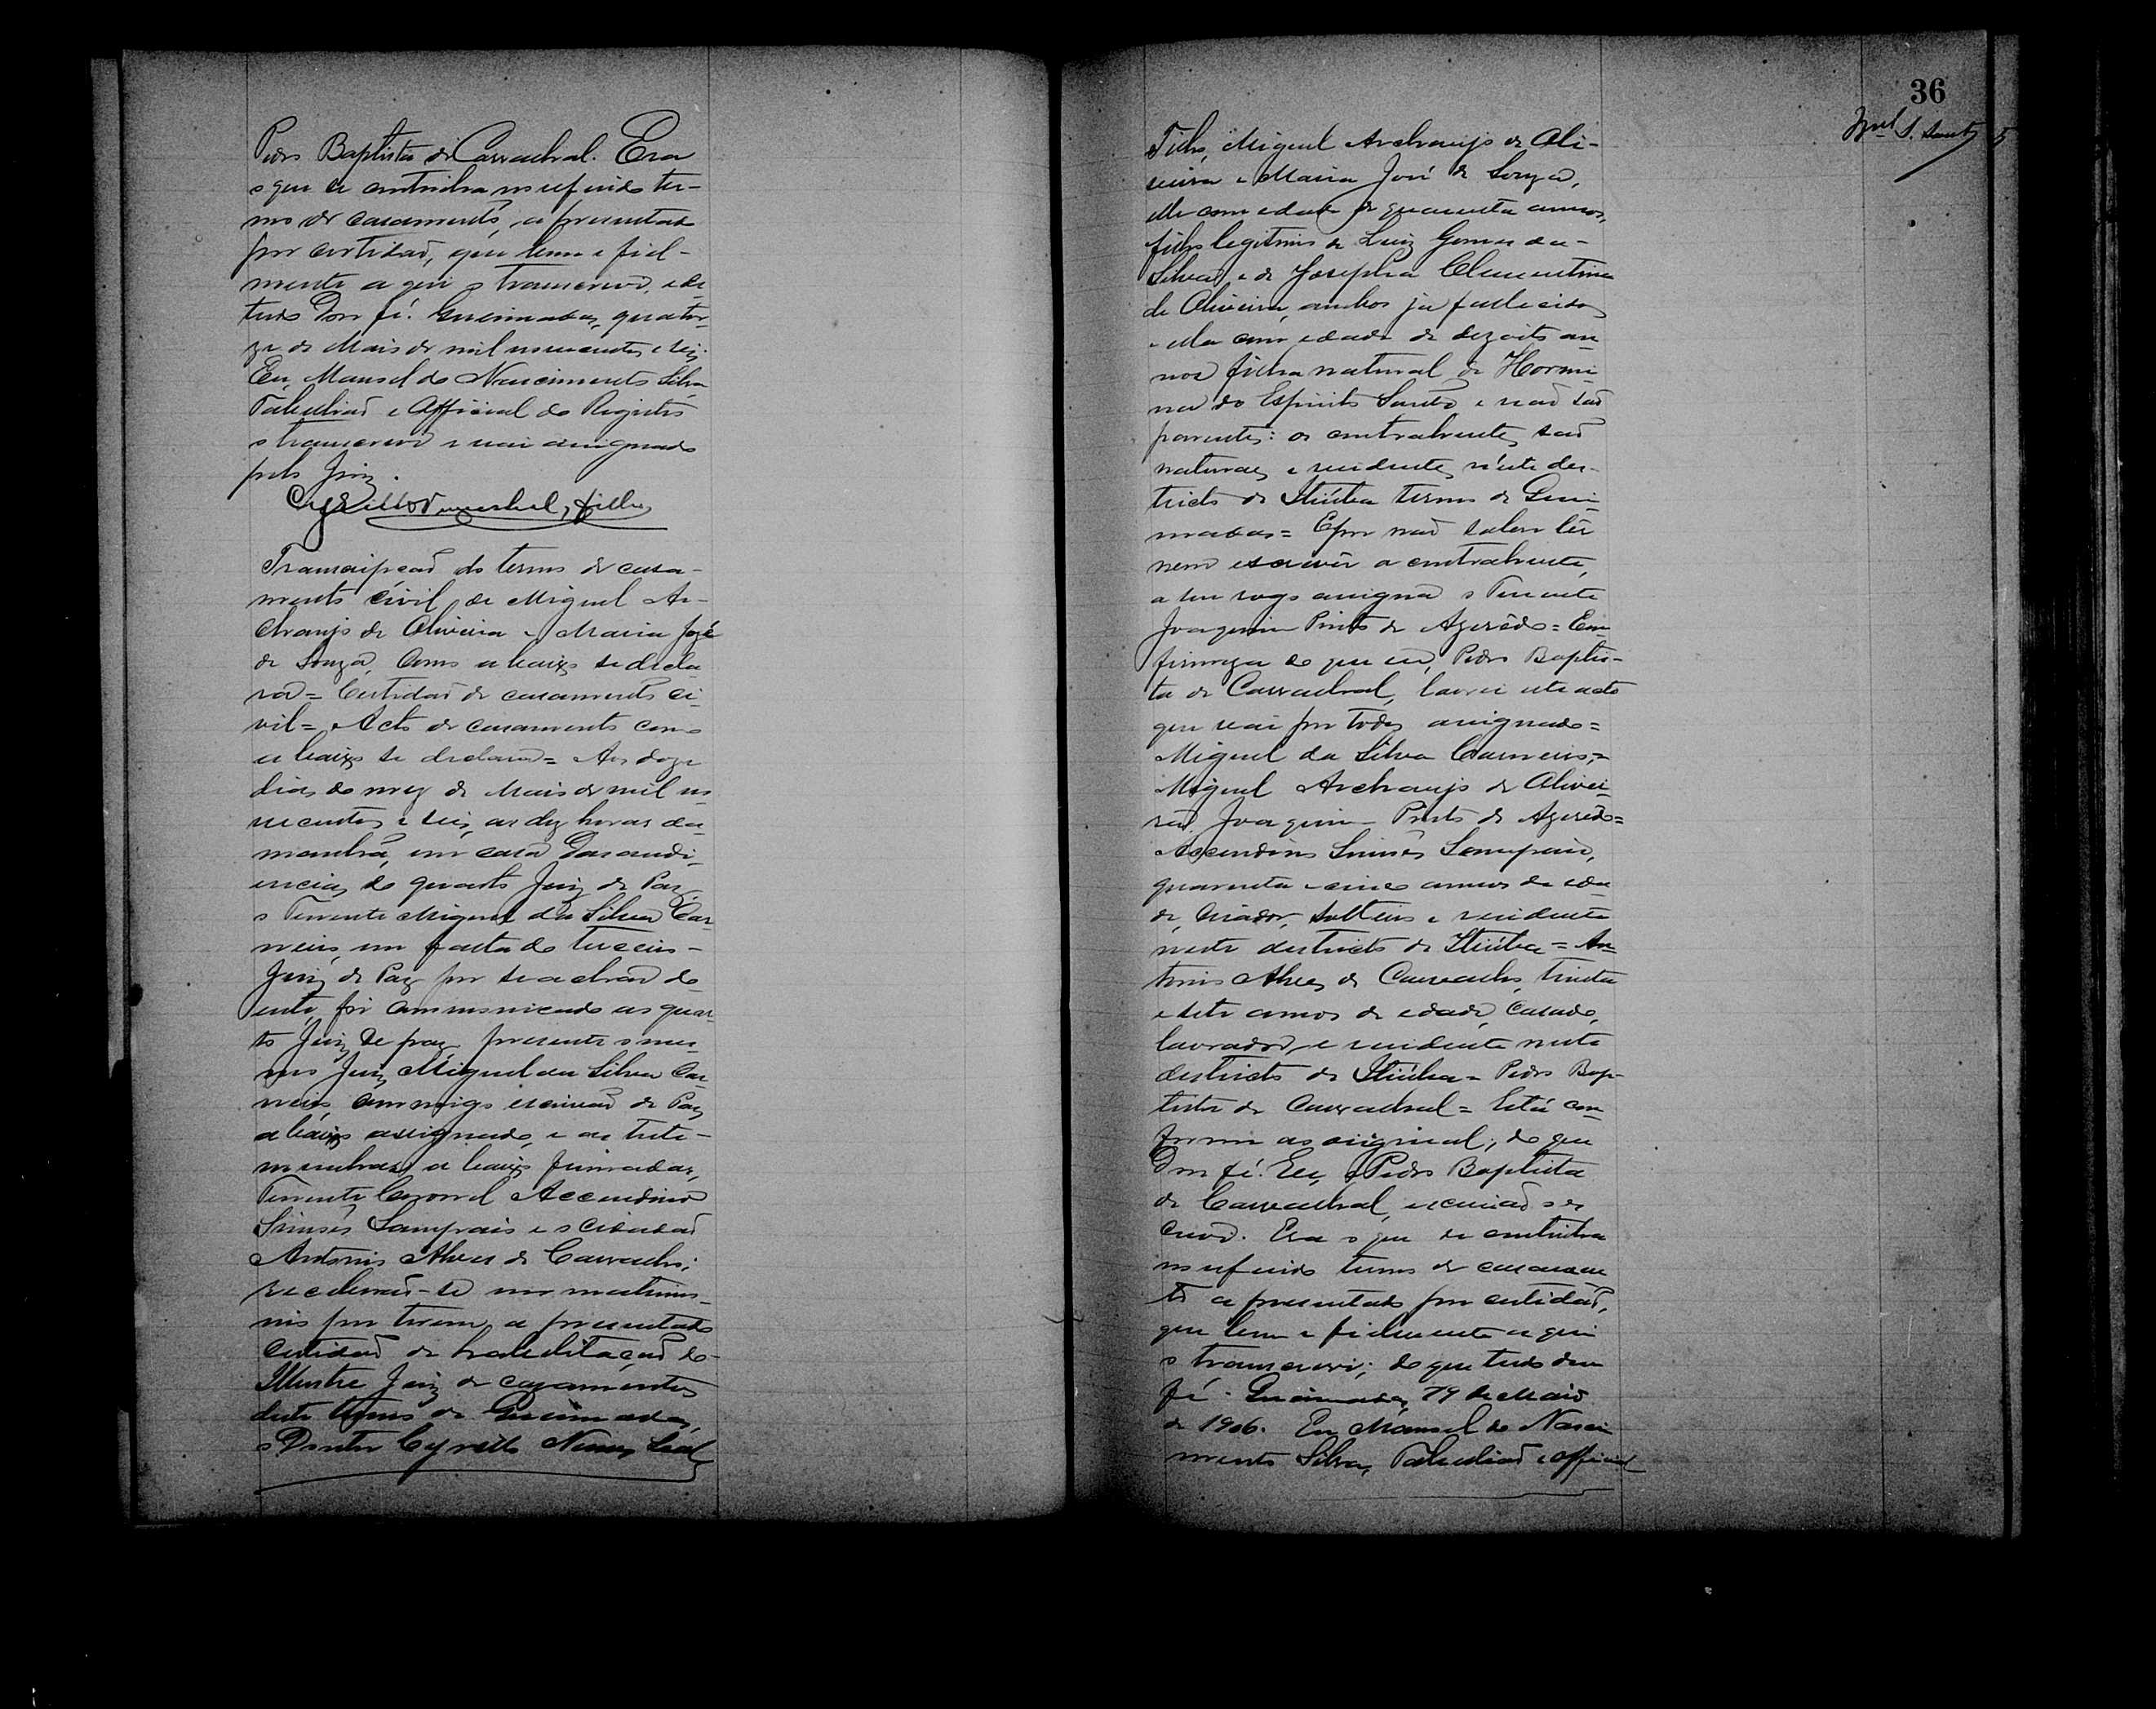 Pedro Baptista de Carvalhal. Era
o que se continha no referido ter-
mo de casamento, apresentado
por certidaõ, que bem e fiel-
mente aqui o transcrevi, e de
tudo Dou fé. Queimadas, quator-
ze de Maio de mil novecentos e seis.
Eu, Manoel do Nascimento Silva
Tabelliaõ e Official do Registro
o transcrevi e vai assignado
pelo Juiz.
Transcripçaõ do termo de casa-
mento civil de Miguel Ar-
chanjo de Oliveira e Maria José
de Souza, Como abaixo se decla-
ra = Certidaõ de casamento ci-
vil = Acto de casamento como
abaixo se declara = Aos doze
dias do mez de Maio de mil no-
vecentos e seis, as dez horas da
manhã, em casa Das audi-
encias do quarto Juiz de Paz
o Tenente Miguel da Silva Car-
neiro, em falta do terceiro
Juiz de Paz por se achar do-
ente, foi communicado ao quar-
to Juiz de paz, presente o mes-
mo Juiz, Miguel da Silva Car-
neiro, commigo escrivaõ de Paz
abaixo assignado, e as teste-
munhas abaixo firmadas,
Tenente Coronel Ascendino
Simões Sampaio e o Cidadaõ
Antonio Alves de Carvalho;
receberaõ-se em matrimo-
nio por terem apresentado
Certidaõ de habilitaçaõ do
Illustre Juiz de casamentos
deste termo de Queimadas,
o Doutor Cyrillo Nunes Leal
36
Filho, Miguel Archanjo de Oli-
veira e Maria José de Souza,
elle com edade de quarenta annos,
filho legitimo de Luiz Gomes da
Silva, e de Josepha Clementina
de Oliveira, ambos já fallecidos
e ella com edade de dezoito an-
nos filha natural de
do Espirito Santo e naõ saõ
parentes: os contrahentes saõ
naturaes e residentes n'este des-
tricto de Itiúba termo de Quei-
madas = E por naõ saber lêr
nem escrevêr a contrahente,
a seu rogo assigna o Tenente
Joaquim Pinto de Azerêdo = Em
firmeza do que eu, Pedro Baptis-
ta de Carvalhal, lavrei este acto
que vai por todos assignado =
Miguel da Silva Carneiro, =
Miguel Archanjo de Olivei-
ra, Joaquim Pinto de Azerêdo =
Ascendino Simões Sampaio,
quarenta e cinco annos de eda-
de, Criador, solteiro e residente
neste destricto de Itiúba = An-
tonio Alves de Carvalho, trinta
e sete annos de edade, Casado,
lavrador, e residente neste
destricto de Itiúba = Pedro Bap-
tista de Carvalhal = Está con-
forme ao original; do que
Dou fé. Eu, Pedro Baptista
de Carvalhal, escrivaõ o es-
crevi. Era o que se continha
no referido termo de casamen-
to apresentado por certidaõ,
que bem e fielmente aqui
o transcrevi; do que tudo dou
fé. Queimadas, 19 de Maio
de 1906. Eu Manoel do Nasci-
mento Silva, Tabelliaõ e official